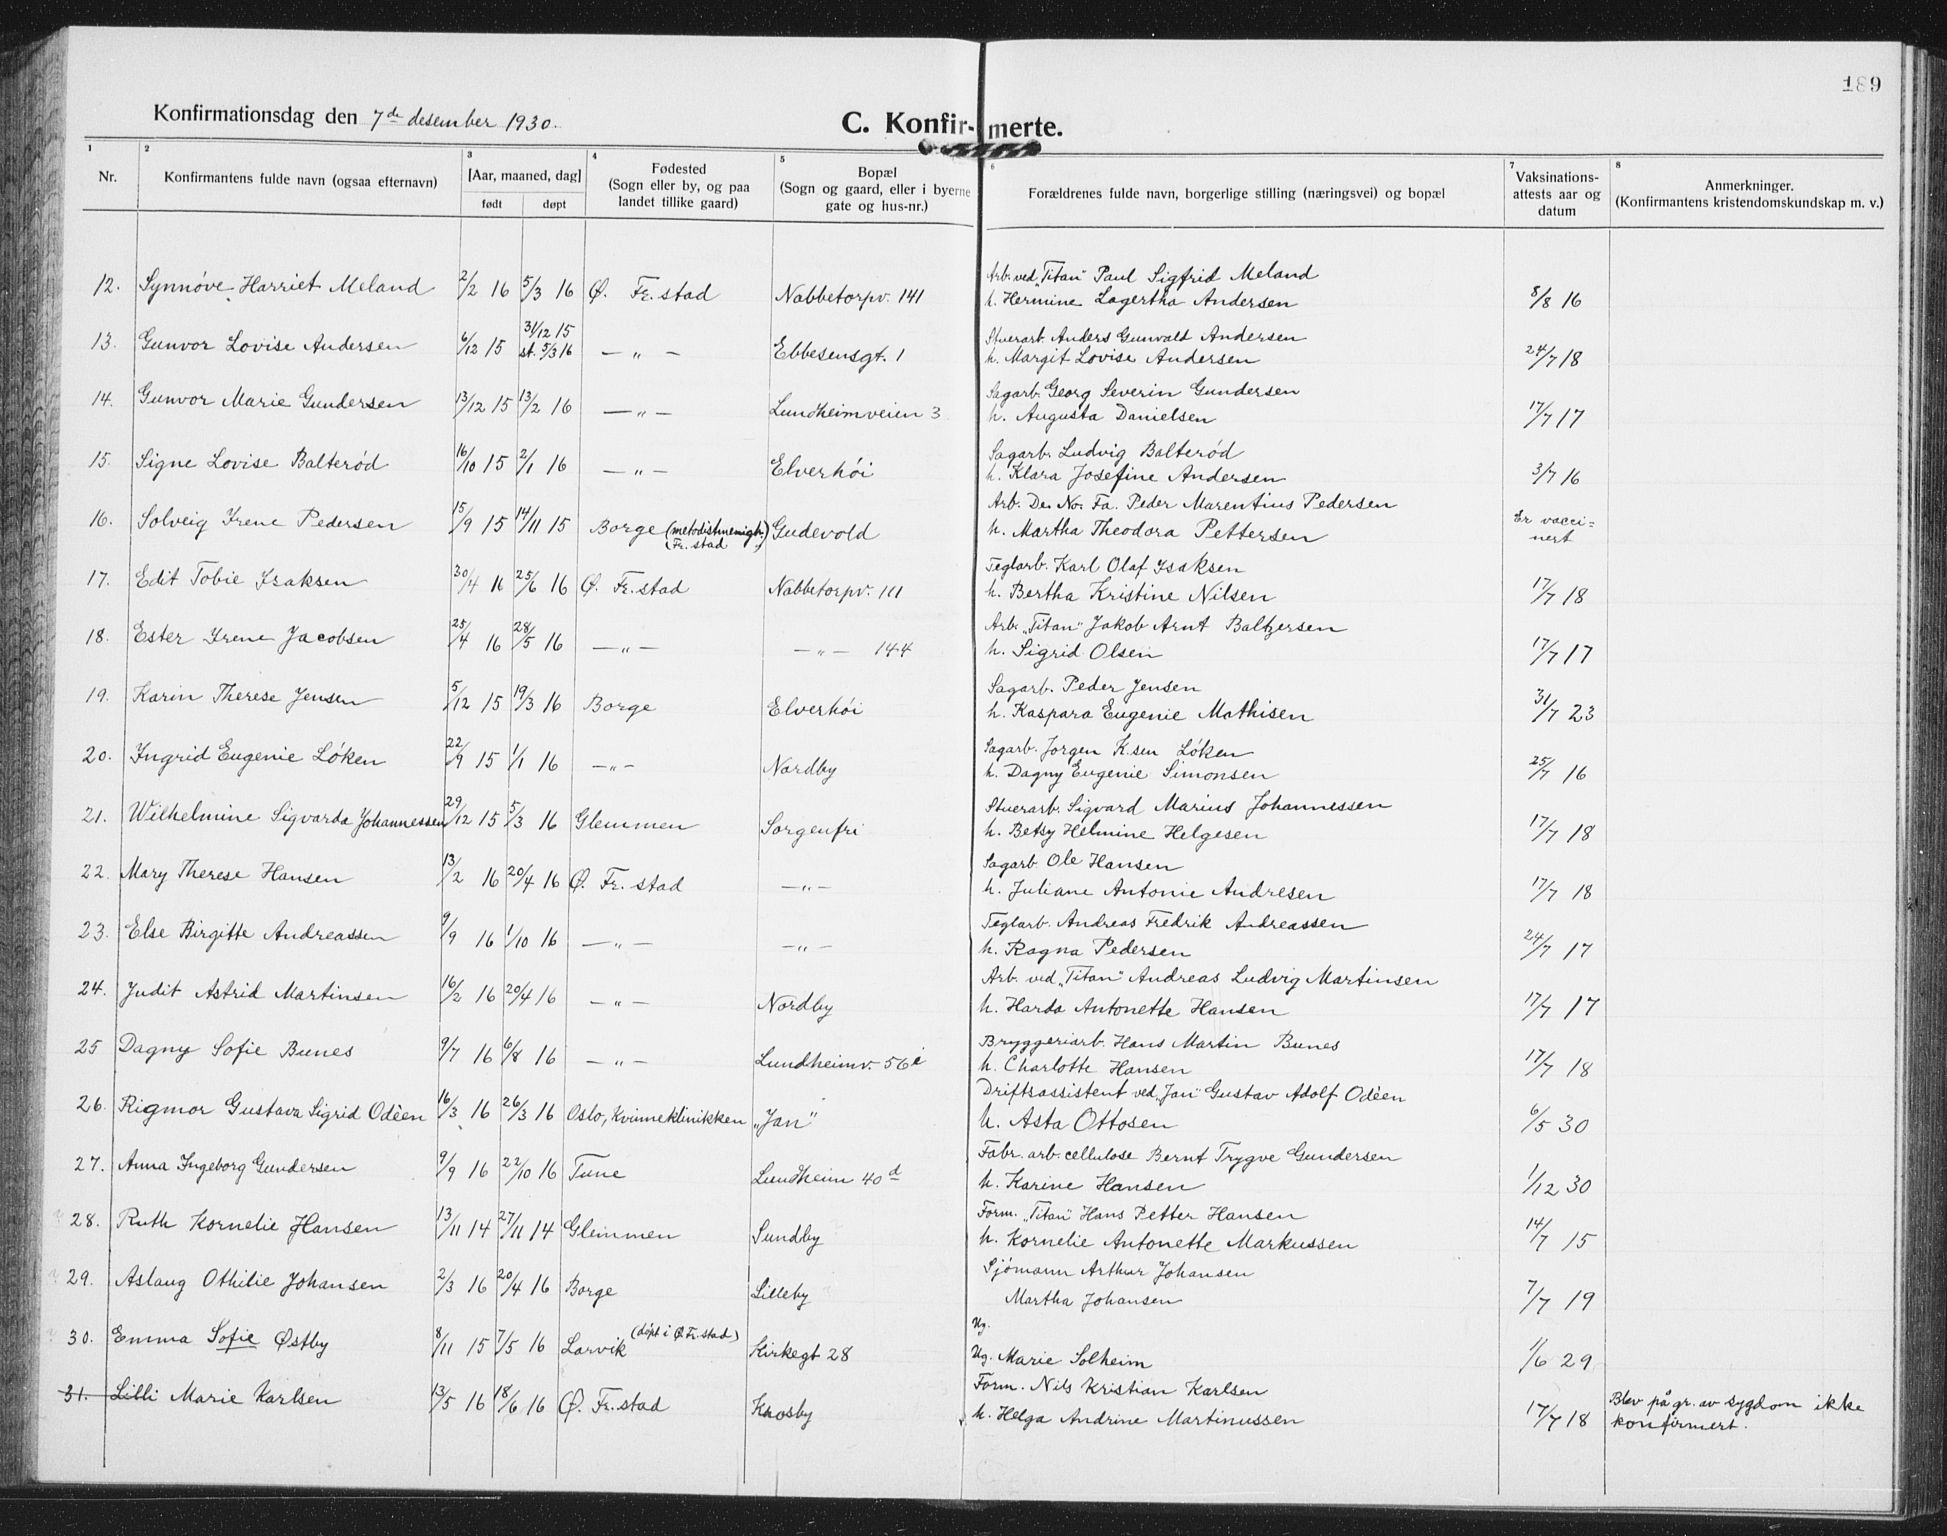 189
Konfirmationsdag den 7de desember 1930.
C. Konfir- merte.
1 2 3 4 5 6 7 8
Nr.
Konfirmantens fulde navn (ogsaa efternavn)
[Aar, maaned, dag]
født døpt
Fødested
(Sogn eller by, og paa
landet tillike gaard)
Bopæl
(Sogn og gaard, eller i byerne
gate og hus-nr.)
Forældrenes fulde navn, borgerlige stilling (næringsvei) og bopæl
Vaksinations-
attests aar og
datum
Anmerkninger.
(Konfirmantens kristendomskundskap m. v.)
12. Synnøve Harriet Meland 2/2 16 5/3 16 Ø. Fr.stad Nabbetorpv. 141
Arb. ved „Titan" Paul Sigfrid Meland
h. Hermine Lagertha Andersen 8/8 16
13. Gunvor Lovise Andersen 6/12 15 31/12 15
st. 5/3 16 — „ — Ebbesensgt. 1
Stuerarb. Anders Gunvald Andersen
h. Margit Lovise Andersen 24/7 18
14. Gunvor Marie Gundersen 13/12 15 13/2 16 — „ — Lundheimveien 3
Sagarb. Georg Severin Gundersen
h. Augusta Danielsen 17/7 17
15. Signe Lovise Balterød 16/10 15 2/1 16 — „ — Elverhöi
Sagarb. Ludvig Balterød
h. Klara Josefine Andersen 3/7 16
16. Solveig Irene Pedersen 15/9 15 14/11 15 Borge (metodistmenigh.
Fr. stad) Gudevold
Arb. De No. Fa. Peder Marentius Pedersen
h. Martha Theodora Pettersen Er vacci-
nert
17. Edit Tobie Isaksen 30/4 16 25/6 16 Ø. Fr.stad Nabbetorpv. 111
Teglarb. Karl Olaf Isaksen
h. Bertha Kristine Nilsen 17/7 18
18. Ester Irene Jacobsen 25/4 16 28/5 16 — „ — — „ — 144
Arb. „Titan" Jakob Arnt Baltzersen
h. Sigrid Olsen 17/7 17
19. Karin Therese Jensen 5/12 15 19/3 16 Borge Elverhöi
Sagarb. Peder Jensen
h. Kaspara Eugenie Mathisen 31/7 23
20. Ingrid Eugenie Løken 22/9 15 1/1 16 — „ — Nordby
Sagarb. Jørgen K.sen Løken
h. Dagny Eugenie Simonsen 25/7 16
21. Wilhelmine Sigvarda Johannessen 29/12 15 5/3 16 Glemmen Sorgenfri
Stuerarb. Sigvard Marius Johannessen
h. Betsy Helmine Helgesen 17/7 18
22. Mary Therese Hansen 13/2 16 20/4 16 Ø. Fr. stad — „ —
Sagarb. Ole Hansen
h. Juliane Antonie Andresen 17/7 18
23. Else Birgitte Andreassen 9/9 16 1/10 16 — „ — — „ —
Teglarb. Andreas Fredrik Andreassen
h. Ragna Pedersen 24/7 17
24. Judit Astrid Martinsen 16/2 16 20/4 16 — „ — Nordby
Arb. ved „Titan" Andreas Ludvig Martinsen
h. Harda Antonette Hansen 17/7 17
25 Dagny Sofie Bunes 9/7 16 6/8 16 — „ — Lundheimv. 56 i
Bryggeriarb. Hans Martin Bunes
h. Charlotte Hansen 17/7 18
26. Rigmor Gustava Sigrid Odèen 16/3 16 26/3 16 Oslo, Kvinneklinikken „Jan"
Driftsassistent ved „Jan" Gustav Adolf Odèen
h. Asta Ottosen 6/5 30
27. Anna Ingeborg Gundersen 9/9 16 22/10 16 Tune Lundheim 40 d
Fabr. arb. cellulose Bernt Trygve Gundersen
h. Karine Hansen 1/12 30
28. Ruth Kornelie Hansen 13/11 14 27/11 14 Glemmen Sundby
Form. „Titan" Hans Petter Hansen
h. Kornelie Antonette Markussen 14/7 15
29. Aslaug Othilie Johansen 2/3 16 20/4 16 Borge Lilleby
Sjömann Arthur Johansen
Martha Johansen 7/7 19
30. Emma Sofie Østby 8/11 15 7/5 16 Larvik (döpt i Ø Fr.stad) Kirkegt 28
Ug.
Ug. Marie Solheim 1/6 29
31. Lilli Marie Karlsen 13/5 16 18/6 16 Ø. Fr.stad Krosby
Form. Nils Kristian Karlsen
h. Helga Andrine Martinussen 17/7 18
Blev på gr. av sygdom ikke
konfirmert.